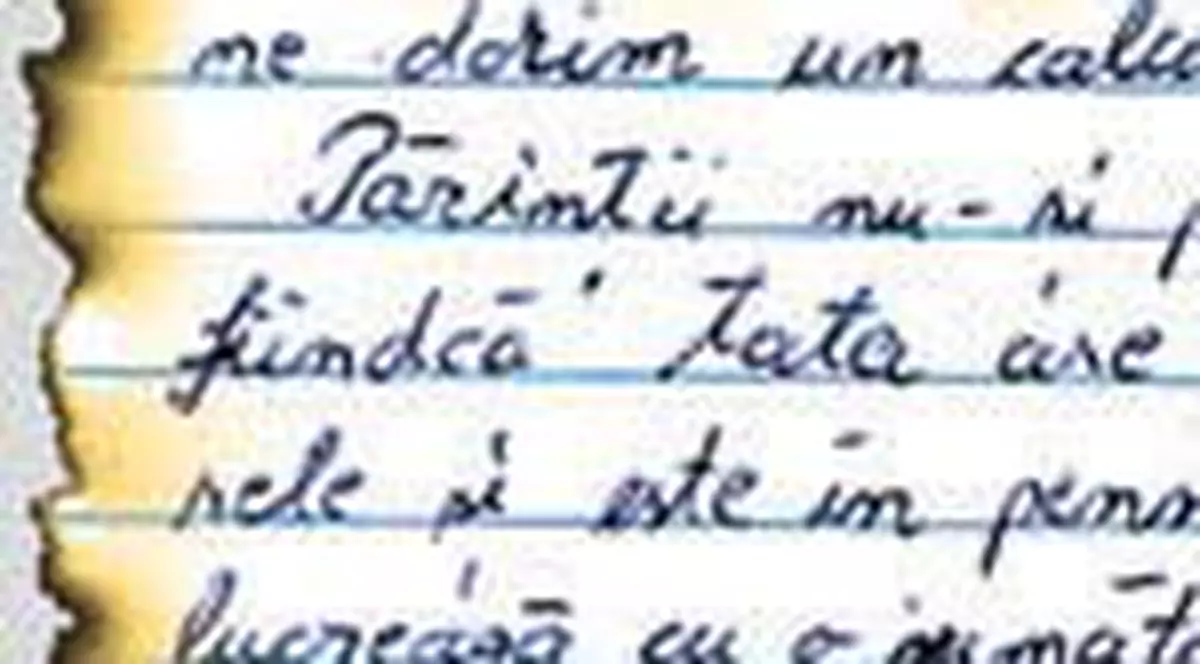 ne dorim un calcu
Părinții nu-și p
fiindcă tata are
rele și este în pens
lucrează cu o jumăta